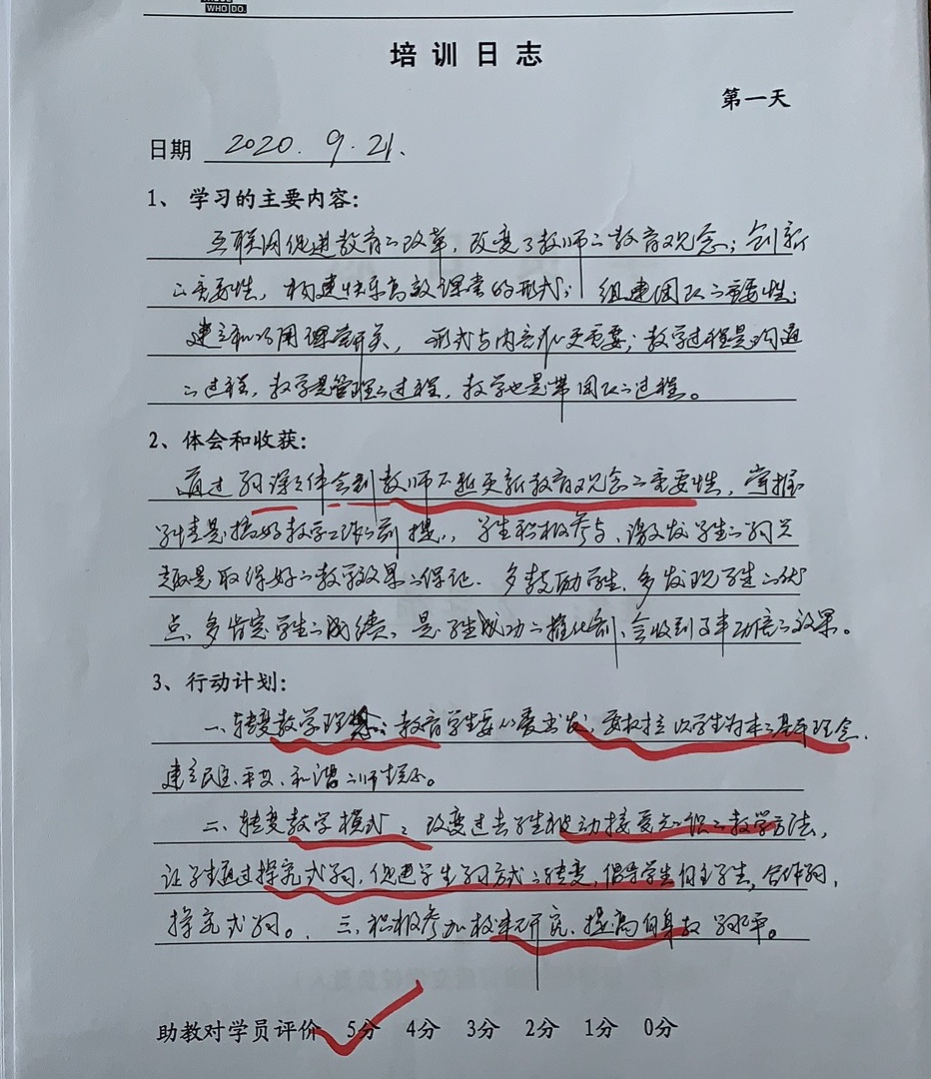 WHO DO
培训日志
第一天
日期 2020.9.21.
1、学习的主要内容:
互联网促进教育之改革,改变了教师之教育观念;创新
之重要性,构建快乐高效课堂的形式;组建团队之重要性;
建立和巧用课堂开关,形式与内容重要;教学过程是沟通
之过程,教学是管理之过程,教学也是带团队之过程。
2、体会和收获:
通过学习深深体会到教师不断更新教育观念之重要性,掌握
学情是搞好教学工作之前提,学生积极参与、激发学生之学习兴
趣是取得好之教学效果之保证.多鼓励学生.多发现学生之优
点、多肯定学生之成绩、是学生成功之催化剂、会收到事功倍之效果。
3、行动计划:
一、转变教学理念:教育学生要以爱出发,要树立以学生为本之基本理念.
建立民主、平等、和谐之师生关系。
二、转变教学模式:改变过去学生被动接受知识之教学方法,
让学生通过探究式学习,促进学生学习方式之转变,倡导学生自主学习,合作学习,
探究式学习。三、积极参加教研究、提高自身教学水平。
助教对学员评价 5分 4分 3分 2分 1分 0分